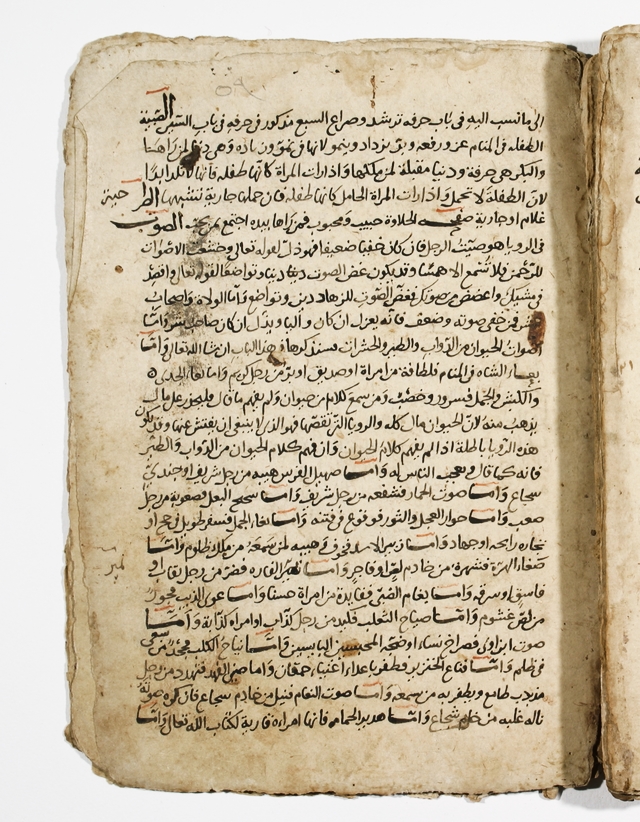 الى ما نسب اليه فى باب حرفه ترشد وصراع السبع مذكور فى حرفه فى باب السين الصبية
الطفله فى المنام عز ورفعه
والبكر هى حرفة ودنيا مقبلة لمن ملكها واذا رات المراة كانها طفله فانها لا تلد ابدا
لان الطفلة لا تحمل واذا رات المراة الحامل كانها طفله فان حملها جارية تشبهها
غلام او جارية حبيب ومحبوب فمن راها بيده اجتمع بمن يحبه الصوت
فى الرويا هو صيت الرجل فان كان خفيا ضعيفا فهو ذل لقوله تعالى وخشعت الاصوات
للرحمن فلا تسمع الا همسا وقد يكون غض الصوت دينا وتواضعا لقوله تعالى واقصد
فى مشيك واغضض من صوتك فغض الصوت للزهاد دين وتواضع واما الولاة واصحاب
فمن خفى صوته وضعف فانه يعزل ان كان واليا
اصوات الحيوان من الدواب والطير والحشرات فسنذكرها فى هذا الباب ان شا الله تعالى واما
الشاة فى المنام فلطافة من امراة او صديق او بر من رجل كريم واما
والكبش والجمل فسرور وخصب ومن سمع كلاما من حيوان ولم يفهم ما قال فليحذر على مال
يذهب منه لان الحيوان مال كله والرويا التى تقصها فهو الذى لا ينبغى ان يفتش عنها وقد يكون
هذه الرويا باطلة اذا لم يفهم كلام الحيوان وان فهم كلام الحيوان من الدواب والطير
فانه كما قال ويعجب الناس له واما صهيل الفرس هيبه من رجل شريف او جندى
شجاع واما صوت الحمار فشفعه من رجل شريف واما البغل فصعوبة من رجل
صعب واما خوار العجل والثور فوقوع فى فتنه واما الجمل فسفر طويل فى حج او
تجاره رابحه او جهاد واما زيير الاسد فخوف وهيبه لمن سمعه من ملك ظلوم واما
الهرة فشهرة من خادم لص او فاجر واما الفاره فضر من رجل نقاب او
فاسق او سرقه واما بغام الظبى ففايدة من امراة حسنا واما عوى الذيب فخوف
من لص غشوم واما صياح الثعلب فكيد من رجل كذاب او امراه كذابة واما
صوت ابن اوى فصراخ نساء او ضجة المحبسين اليابسين واما نباح الكلب
فى ظلم واما الخنزير فظفر باعداء اغنياء حمقان واما الفهد فتهدد من رجل
مذبذب طامع ويظفر به من سمعه واما صوت النعام فنيل من خادم شجاع فان كره صوته
ناله غلبه من خادم شجاع واما هدير الحمامه فانها امراة قارية لكتاب الله تعالى واما